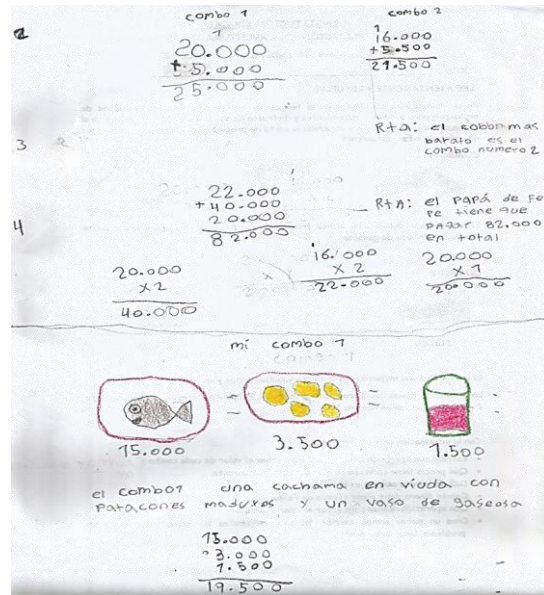 combo 1
1
20.000
+ 5.000
25.000
combo 2
1
16.000
+5.500
21.500
3
R+a: el combo mas
barato es el
combo numero 2
4
22.000
+40.000
20.000
82.000
R+A: el papá de Fe
Pe tiene que
pagar 82.000
en total
20.000
X2
40.000
16.000
X 2
22.000
20.000
X 1
20.000
mi combo 1
15.000
3.500
1.500
el combo1 una cachama en viuda con
Patacones maduros y un vaso de gaseosa
15.000
3.000
1.500
19.500